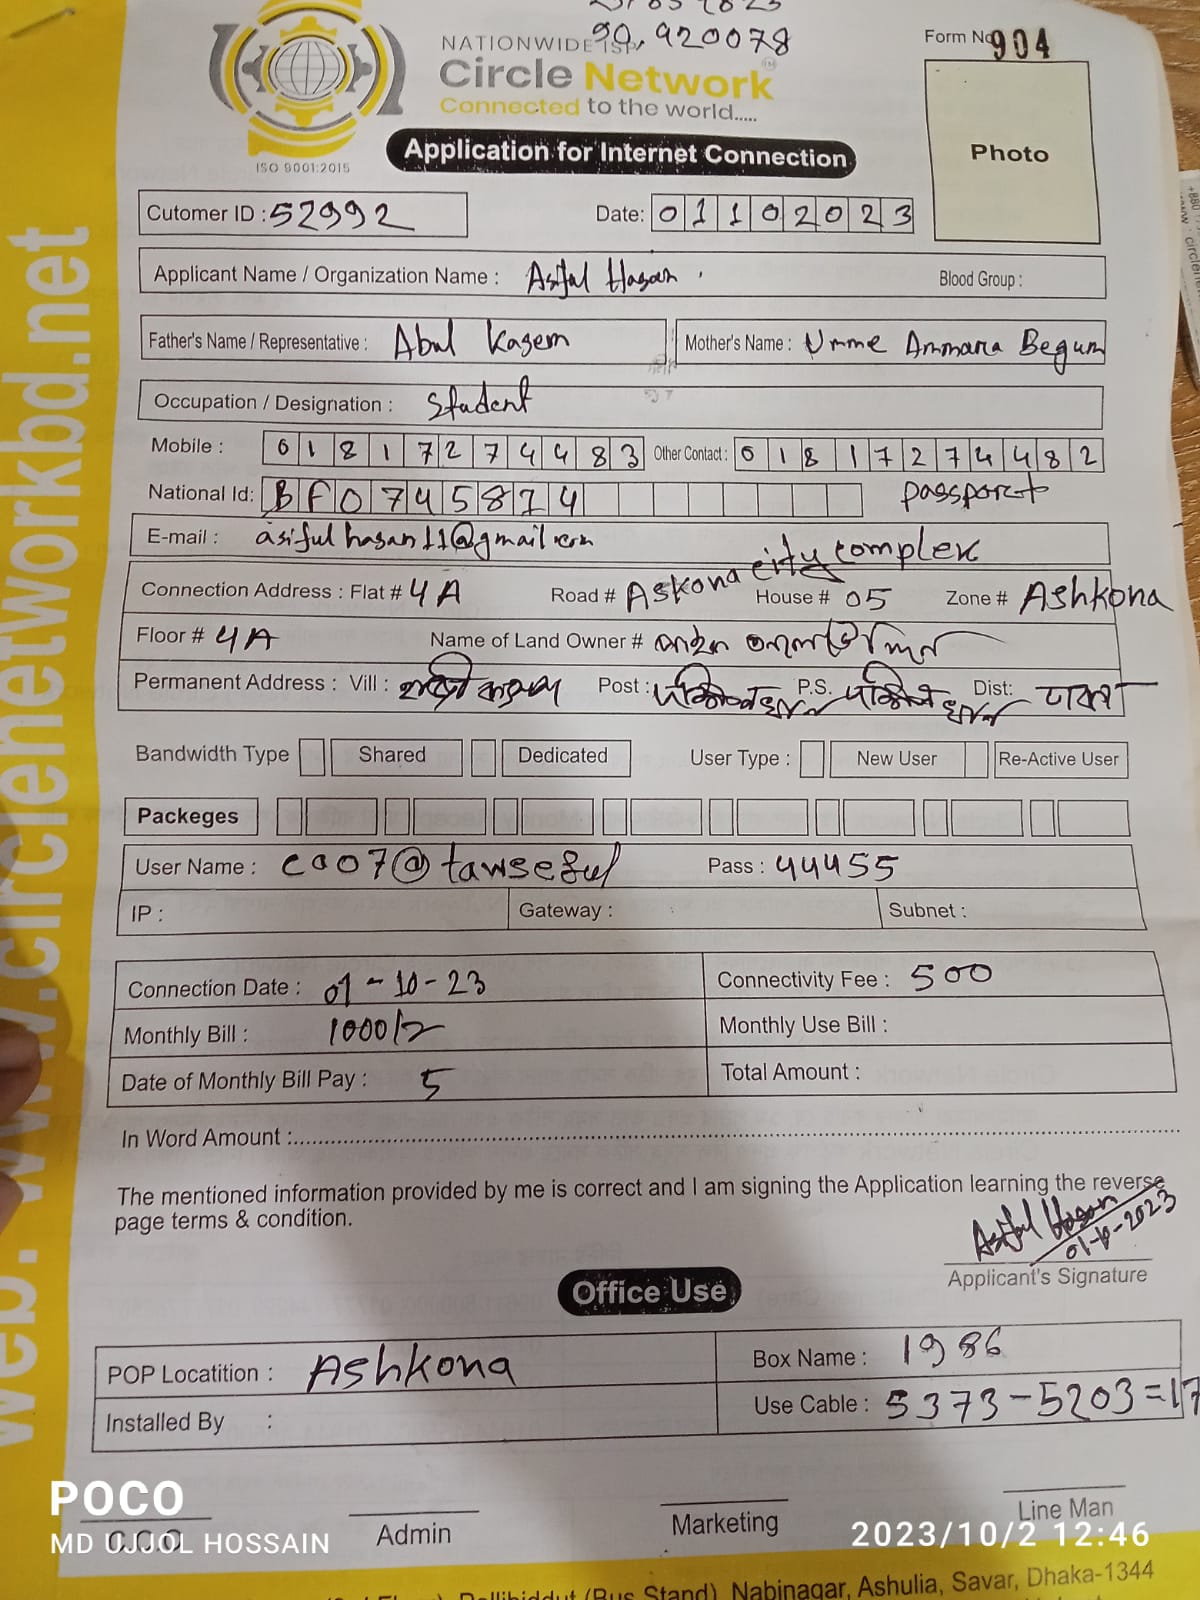 90,920078
NATIONWIDE ISP
Form No 904
Circle Network
Connected to the world.....
ISO 9001:2015
Application for Internet Connection
Photo
Cutomer ID : 52992
Date: 01102023
Applicant Name / Organization Name : Asiful Hasan
Blood Group :
Father's Name / Representative : Abul Kasem
Mother's Name : Umme Ammara Begum
Occupation / Designation : Student
Mobile : 01817274483 Other Contact : 01817274482
National Id: BF0745874 passport
E-mail : asifulhasan11@gmail.com
Connection Address : Flat # 4A Road # Askona city complex House # 05 Zone # Ashkona
Floor # 4A Name of Land Owner #
Permanent Address : Vill : Post : P.S. Dist: ঢাকা
Bandwidth Type Shared Dedicated User Type : New User Re-Active User
Packeges
User Name : c007@tawseful Pass : 44455
IP : Gateway : Subnet :
Connection Date : 01-10-23 Connectivity Fee : 500
Monthly Bill : 1000/= Monthly Use Bill :
Date of Monthly Bill Pay : 5 Total Amount :
In Word Amount :
The mentioned information provided by me is correct and I am signing the Application learning the reverse
page terms & condition.
Asiful Hasan
01-10-2023
Applicant's Signature
Office Use
POP Locatition : Ashkona Box Name : 1986
Installed By : Use Cable : 5373-5203=17
Admin Marketing Line Man
POCO
MD UJJOL HOSSAIN
2023/10/2 12:46
(Bus Stand), Nabinagar, Ashulia, Savar, Dhaka-1344
web: www.circlenetworkbd.net